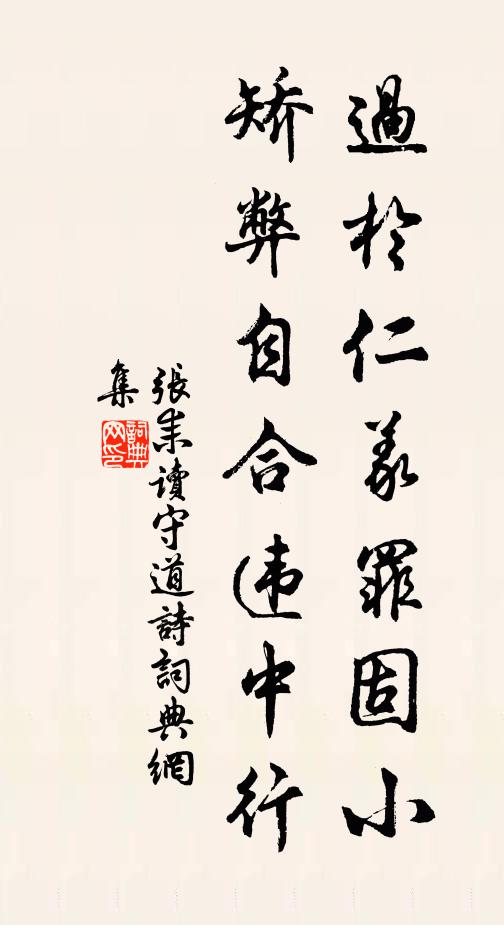 過於仁義罪固小
矫弊自合违中行
張耒讀守道詩詞典網
集
詞典網印